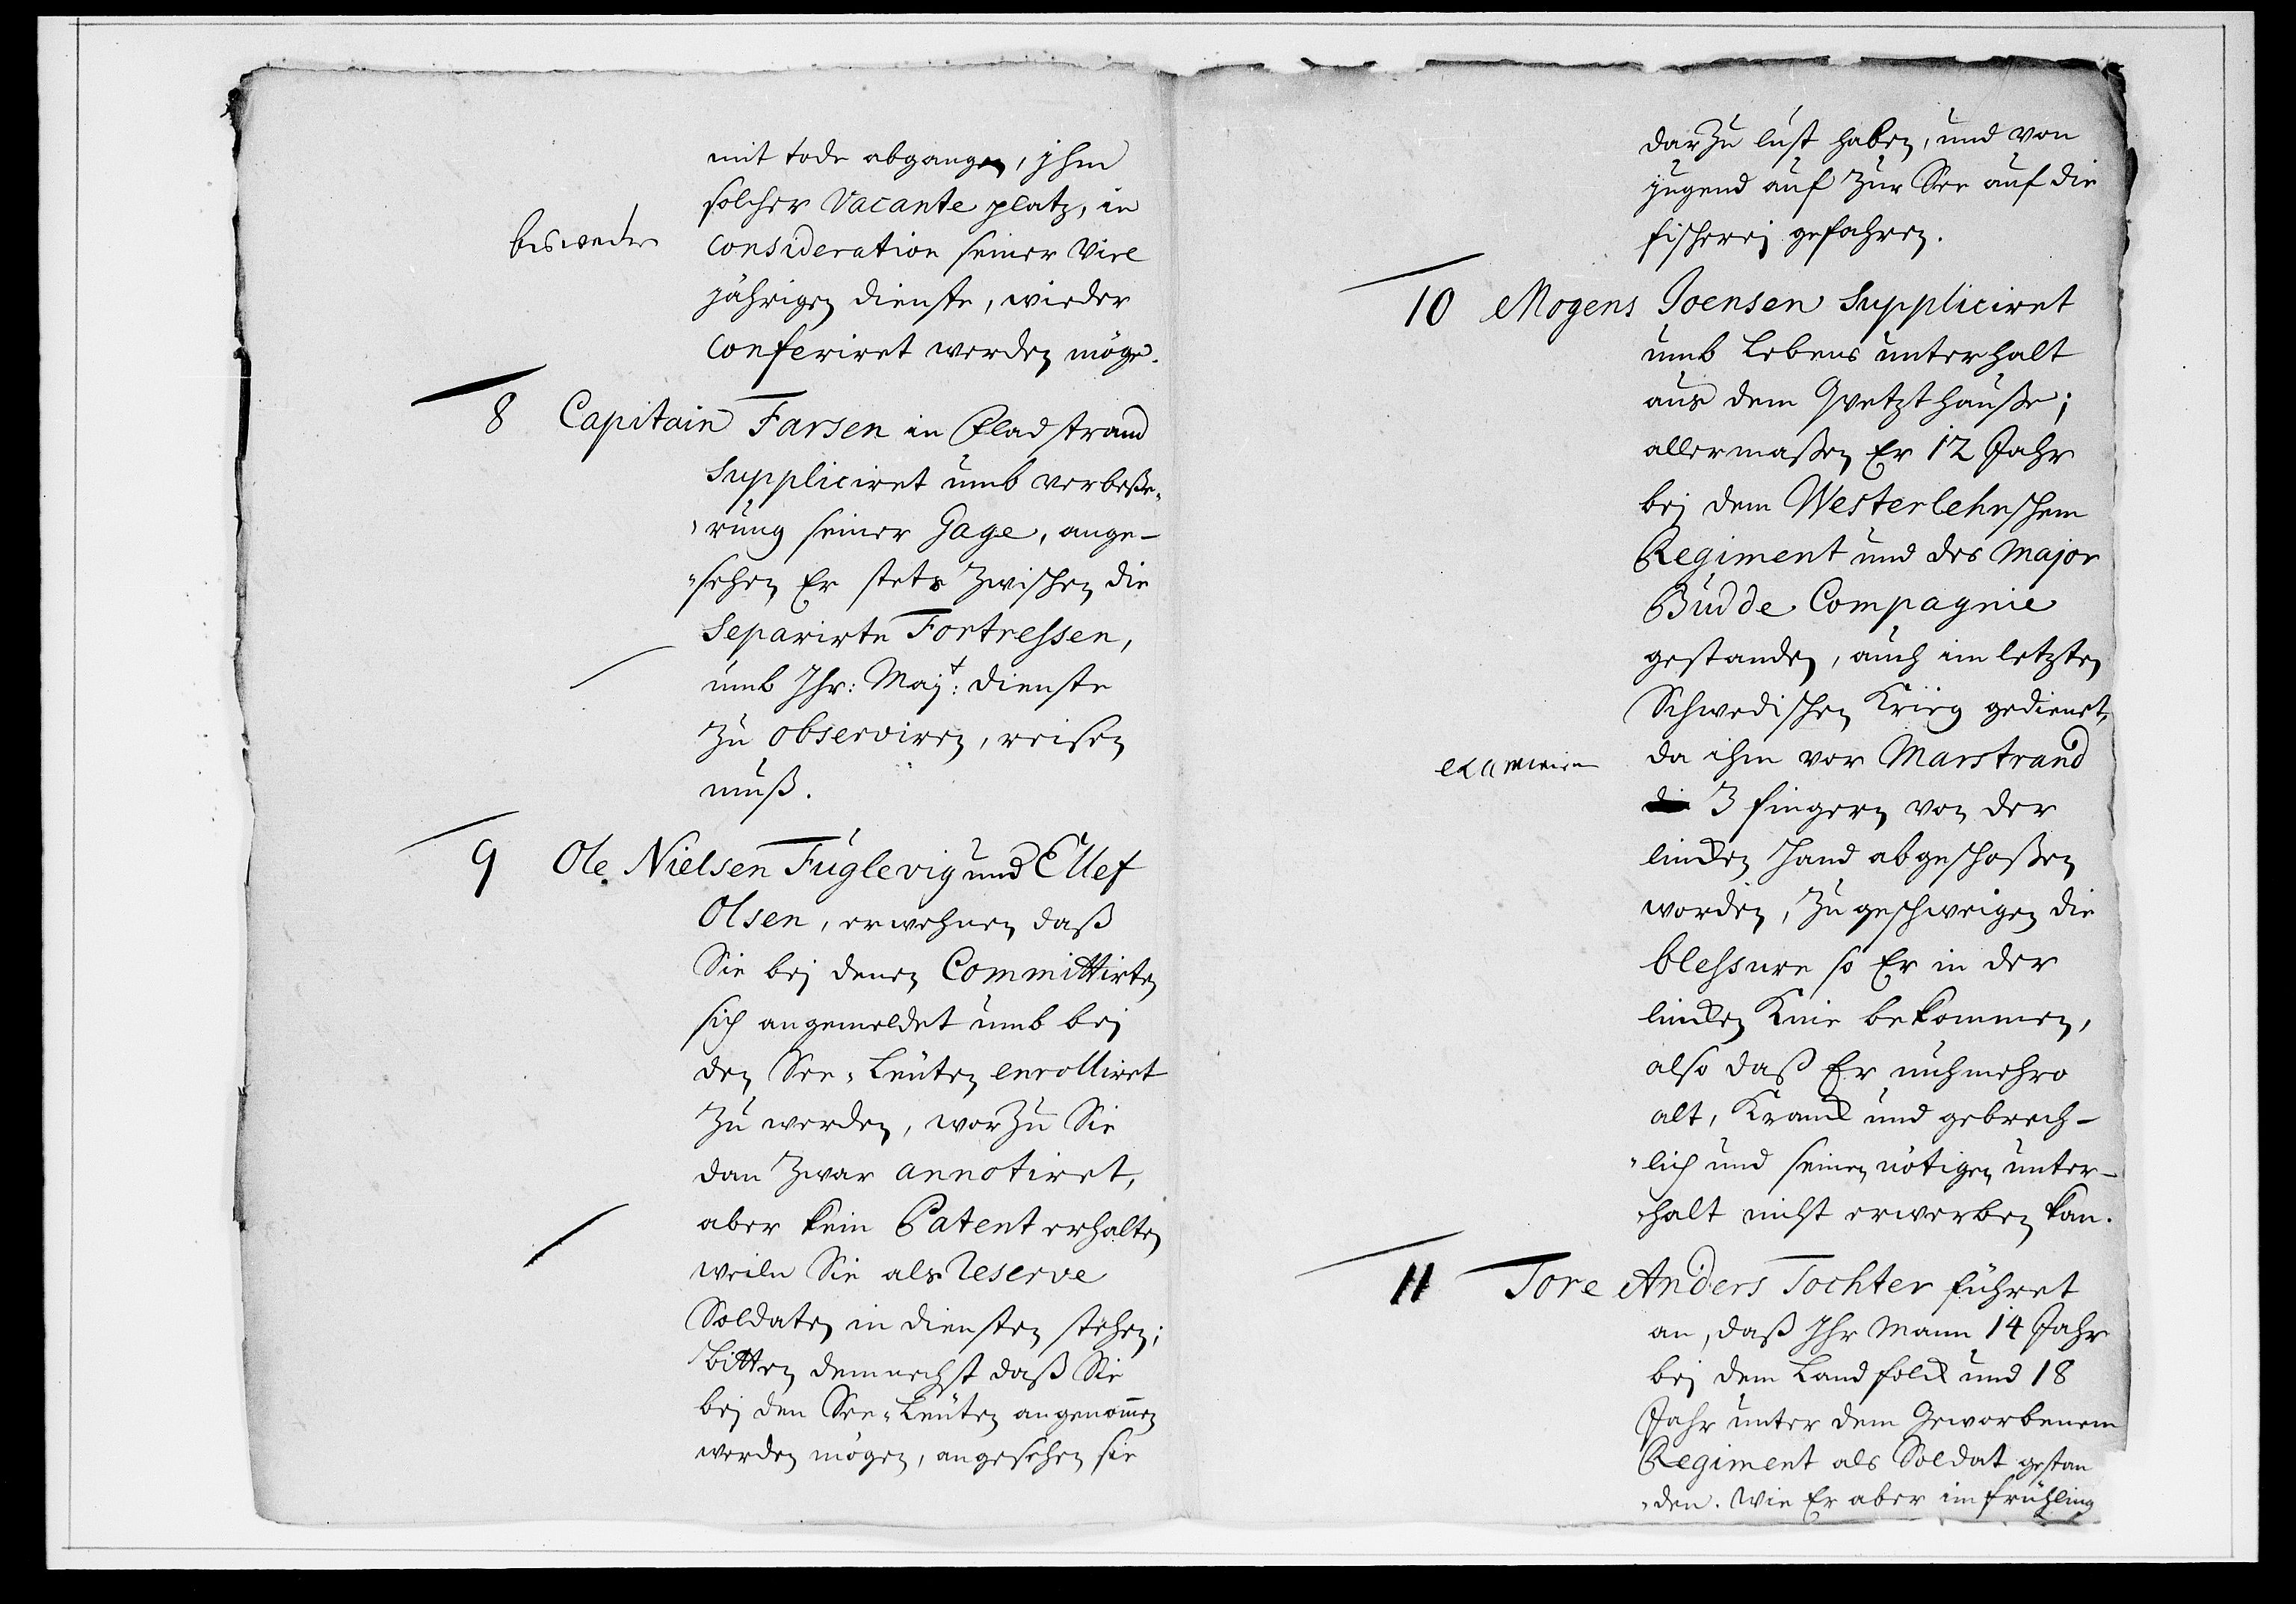 mit tode abgangen, ihm
solcher Vacante platz, in
consideration seiner viel
jährigen dienste, wieder
conferiret werden möge.
8 Capitain Farsen in Fladstrand
Suppliciret umb verbeße¬
rung seiner Gage, ange-
sehen Er stets zwischen die
Separirte Fortressen,
umb Ihr: Majt: dienste
zu observiren, reisen
muß.
9 Ole Nielsen Fuglevig und Ellef
Olsen, erwehnen daß
Sie bej denen Committirten
sich angemeldet umb bej
den See-Leuten enrolliret
zu werden, worzu Sie
dan zwar annotiret,
aber kein Patent erhalten
weiln Sie als Reserve
Soldaten in diensten stehen;
bitten demnechst daß Sie
bej den See-Leuten angenom̄en
werden mögen, angesehen sie
darzu lust haben, und von
jugend auf zur See auf die
fischereij gefahren.
10 Mogens Joensen Suppliciret
umb Lebens unterhalt
aus dem Qvetzthauße;
allermaßen Er 12 Jahr
bej dem Westerlehnschem
Regiment und des Major
Budde Compagnie
gestanden, auch im letzten
Schwedischen Krieg gedienet,
examinire
da ihm vor Marstrand
3 fingern von der
lincken Hand abgeschoßen
worden, zu geschweigen die
blessure so Er in der
lincken Knie bekommen,
also daß Er nuhmehro
alt, Kranck und gebrech-
lich und seinen nötigen unter-
halt nicht erwerben kan.
11 Tore Anders Tochter führet
an, daß Ihr Mann 14 Jahr
bej dem Land folck und 18
Jahr unter dem Geworbenem
Regiment als Soldat gestan
den. Wie Er aber im frühling